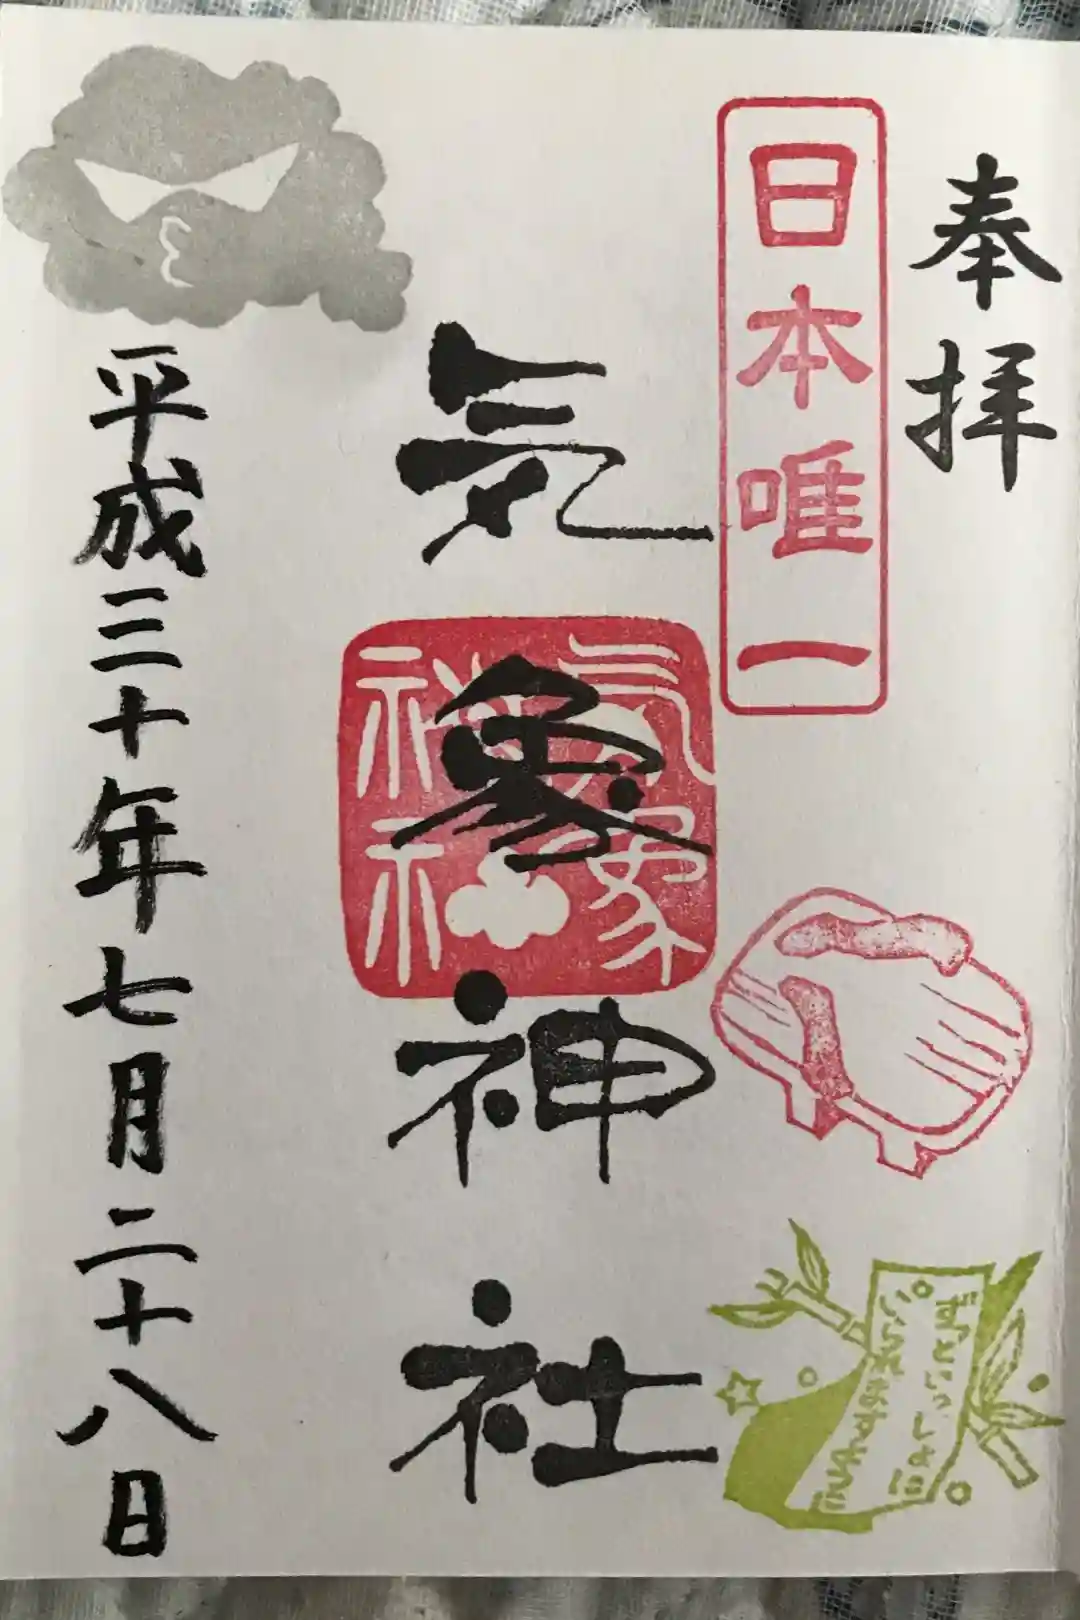 奉拝
日本唯一
ずっといっしょに
いられますように
気象神社
気象
神社
平成三十年七月二十八日